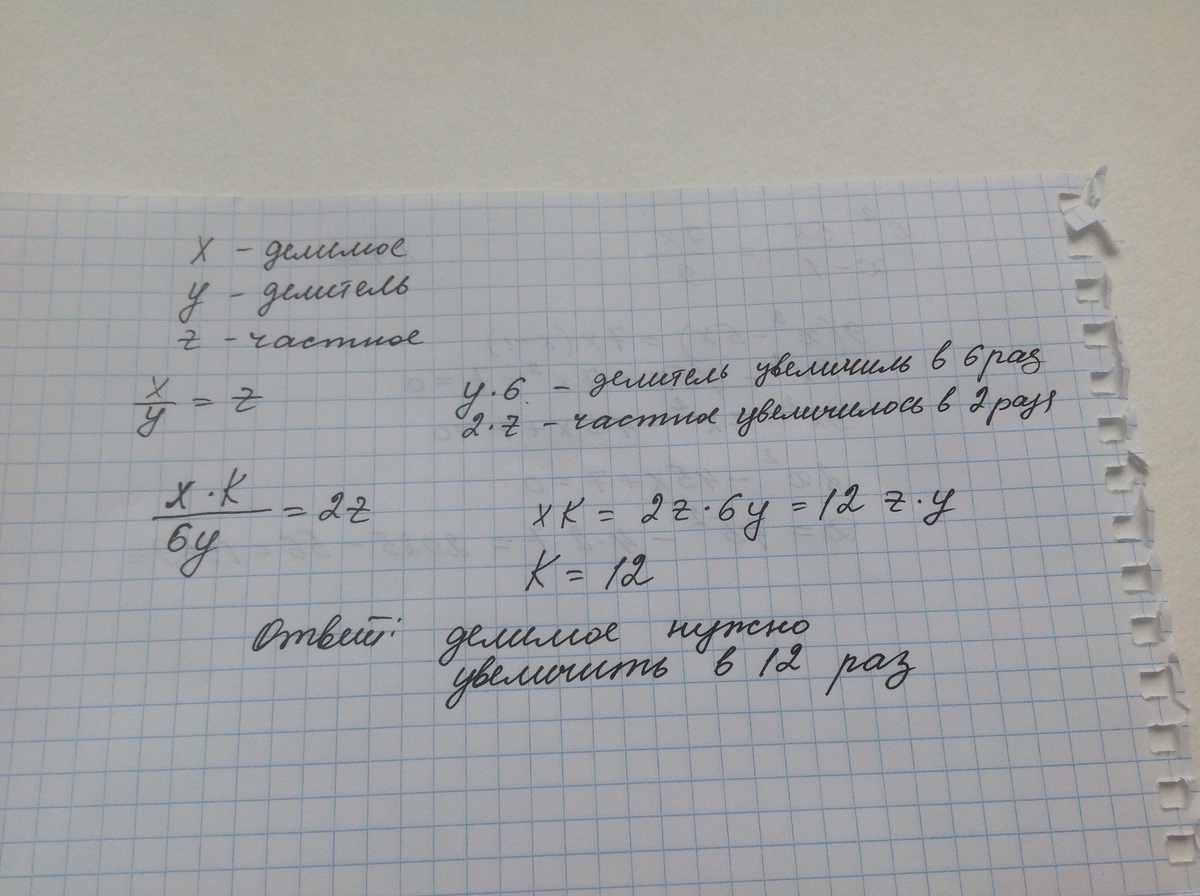 x - делимое
y - делитель
z - частное
x/y = z
y·6 - делитель увеличиль в 6 раз
2·z - частное увеличилось в 2 раза
x·K/6y = 2z
xK = 2z·6y = 12 z·y
K = 12
Ответ: делимое нужно
увеличить в 12 раз